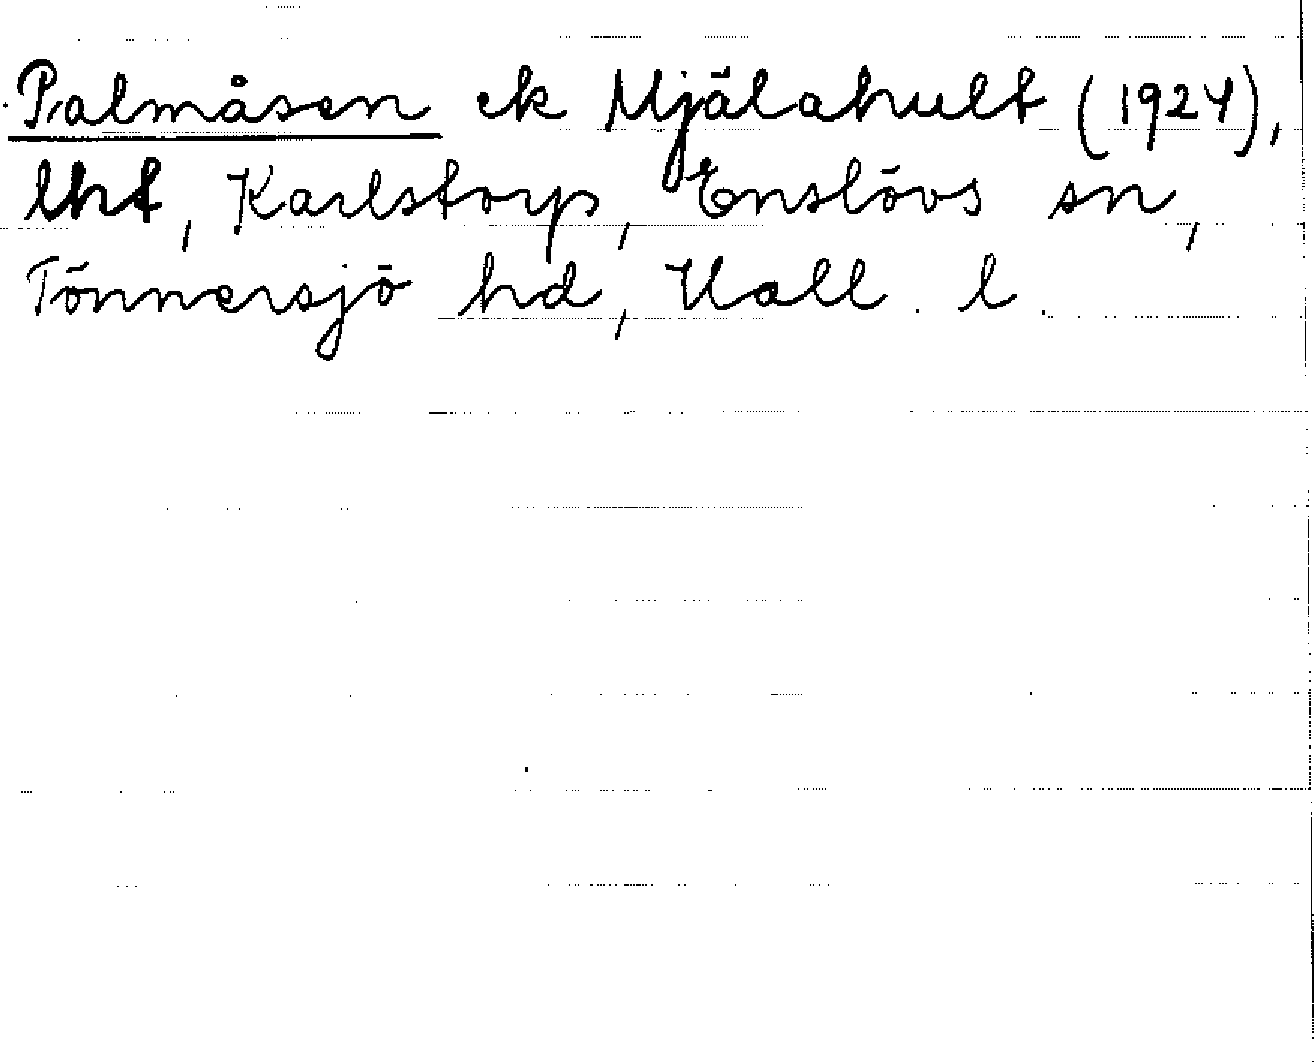 Palmåsen ek Mjälahult (1924),
lht, Karlstorp, Enslövs sn,
Tönnersjö hd, Hall. l.